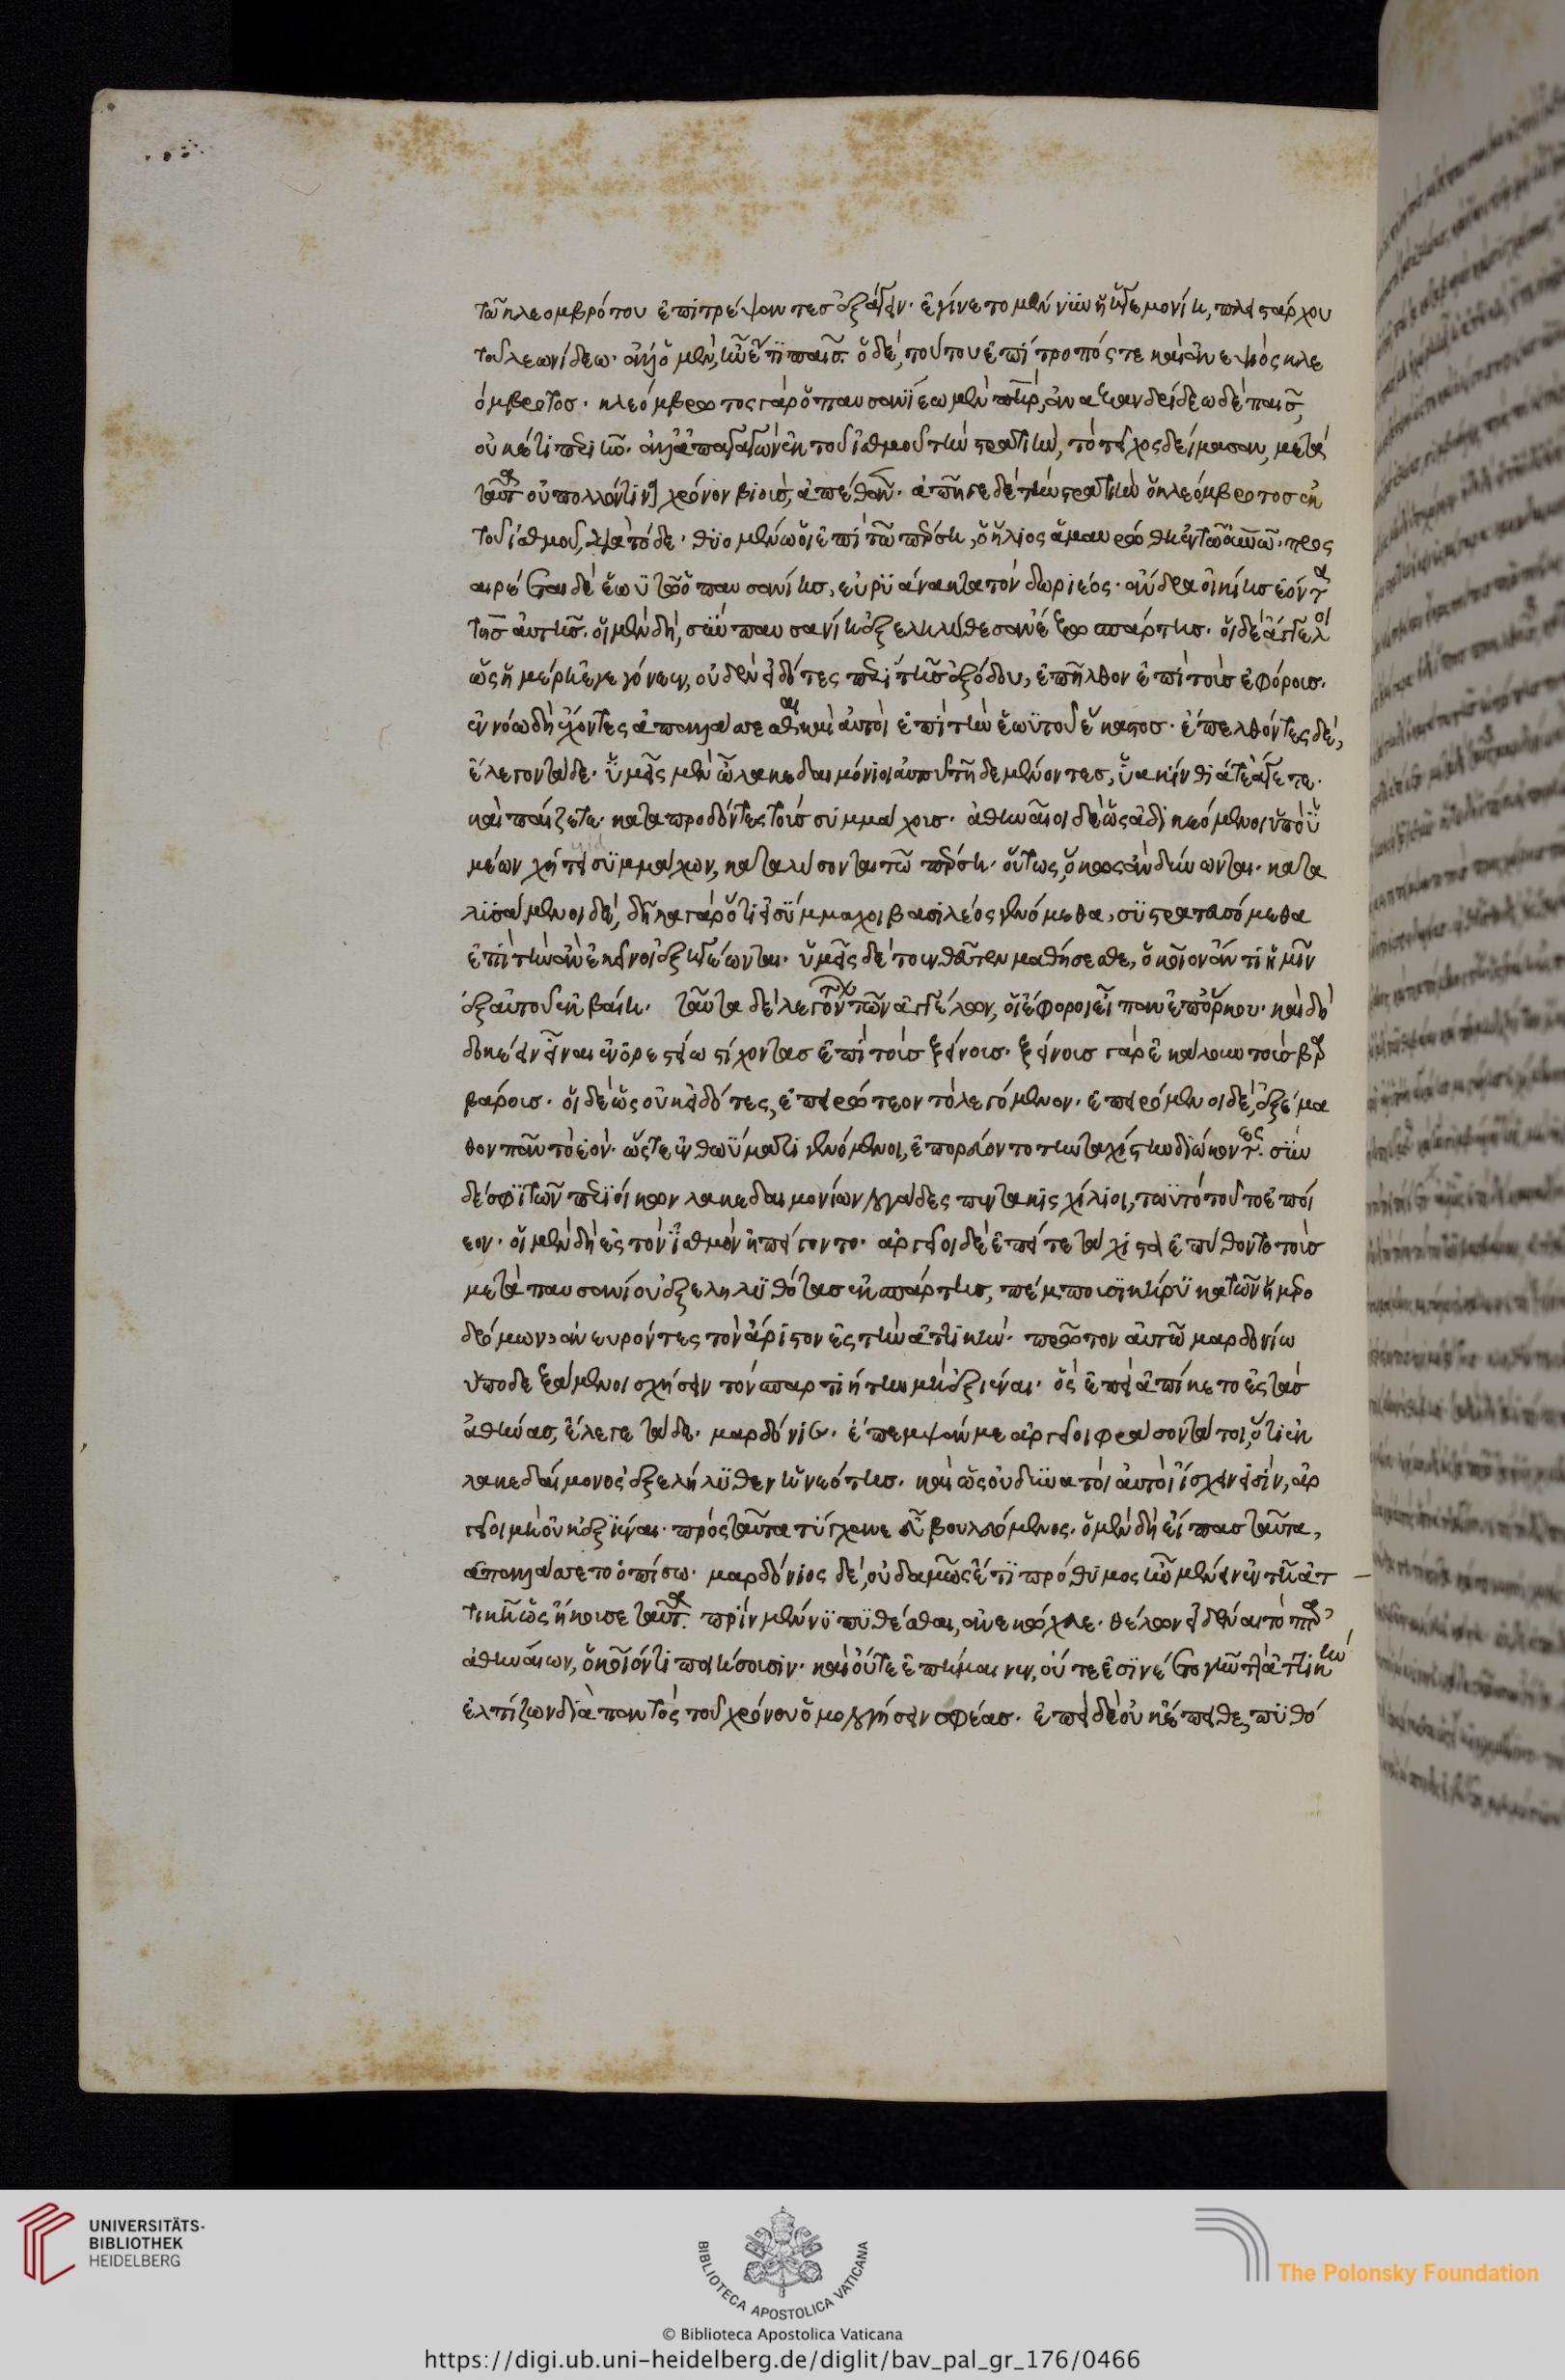 τῶ κλεομβρότου ἐπιτρέψαντες ἐξάγειν. ἐγίνετο μέν νυν ἡ ἡγεμονίη, πλειστάρχου
τοῦ λεωνίδεω· ἀλλ' ὁ μὲν, ἦν ἔτι παῖς. ὁ δὲ, τούτου ἐπίτροπός τε καὶ ἀνεψιὸς κλε
όμβροτος. κλεόμβροτος γὰρ ὁ παυσανίεω μὲν πατὴρ, ἀναξανδρείδεω δὲ παῖς,
οὐκέτι περιῆν. ἀλλ' ἀπαγαγὼν ἐκ τοῦ ἰσθμοῦ τὴν στρατιὴν, τὸ τεῖχος δείμασαν, μετὰ
ταῦτα οὐ πολλόν τινα χρόνον βιοὺς, ἀπέθανε. ἀπῆγε δὲ τὴν στρατιὴν ὁ κλεόμβροτος ἐκ
τοῦ ἰσθμοῦ, διὰ τόδε· θυομένω οἱ ἐπὶ τῶ πέρση, ὁ ἥλιος ἀμαυρώθη ἐν τῶ οὐρανῶ. προσ
αιρέεται δὲ ἑωυτῶ ὁ παυσανίης, εὐρυάνακτα τὸν δωριέος· ἄνδρα οἰκίης ἐόντα
τῆς αὐτῆς. οἱ μὲν δὴ, σὺν παυσανίη ἐξεληλύθεσαν ἔξω σπάρτης. οἱ δὲ ἄγγελοι
ὡς ἡμέρη ἐγεγόνεεν, οὐδὲν εἰδότες περὶ τῆς ἐξόδου, ἐπῆλθον ἐπὶ τοὺς ἐφόρους.
ἐν νόω δὴ ἔχοντες ἀπαλλάσσεσθαι καὶ αὐτοὶ ἐπὶ τὴν ἑωυτοῦ ἕκαστος. ἐπελθόντες δὲ,
ἔλεγον τάδε. ὑμεῖς μὲν ὦ λακεδαιμόνιοι αὐτοῦ τῆδε μένοντες, ὑακίνθιά τε ἄγετε.
καὶ παίζετε. καταπροδόντες τοὺς συμμάχους. ἀθηναῖοι δὲ ὡς ἀδικεόμενοι ὑπὸ ὑ
μέων χήτεϊ συμμάχων, καταλύσονται τῶ πέρση. οὕτως, ὅκως ἂν δύνωνται. κατα
λυσάμενοι δὲ, δῆλα γὰρ ὅτι σύμμαχοι βασιλέος γινόμεθα, συστρατευσόμεθα
ἐπὶ τὴν ἂν ἐκεῖνοι ἐξηγέωνται. ὑμεῖς δὲ τὸ ἐνθεῦτεν μαθήσεσθε, ὁκοῖον ἄν τι ὑμῖν
ἐξ αὐτοῦ ἐκβαίη. ταῦτα δὲ λεγόντων τῶν ἀγγέλων, οἱ ἔφοροι εἶπαν ἐπ' ὅρκου. καὶ δὴ
δοκέειν εἶναι ἐν ὀρεστείω στίχοντας ἐπὶ τοὺς ξείνους. ξείνους γὰρ ἐκάλουν τοὺς βαρ
βάρους. οἱ δὲ ὡς οὐκ εἰδότες, ἐπειρώτεον τὸ λεγόμενον. ἐπειρόμενοι δὲ, ἐξέμα
θον πᾶν τὸ ἐόν. ὥστε ἐν θωύματι γενόμενοι, ἐπορεύοντο τὴν ταχίστην διώκοντες. σὺν
δέ σφι τῶν περιοίκων λακεδαιμονίων λογάδες πεντακισχίλιοι, τωυτὸ τοῦτο ἐποί
εον. οἱ μὲν δὴ ἐς τὸν ἰσθμὸν ἠπείγοντο. ἀργεῖοι δὲ ἐπείτε τάχιστα ἐπύθοντο τοὺς
μετὰ παυσανίου ἐξεληλυθότας ἐκ σπάρτης, πέμπουσι κήρυκα τῶν ἡμερο
δρόμων ἀνευρόντες τὸν ἄριστον ἐς τὴν ἀττικήν. πρῶτον αὐτῶ μαρδονίω
ὑποδεξάμενοι σχήσειν τὸν σπαρτιήτην μὴ ἐξιέναι. ὃς ἐπεὶ ἀπίκετο ἐς τὰς
ἀθήνας, ἔλεγε τάδε. μαρδόνιε. ἔπεμψάν με ἀργεῖοι φράσοντά τοι, ὅτι ἐκ
λακεδαίμονος ἐξελήλυθεν ἡ νεότης. καὶ ὡς οὐ δυνατοὶ αὐτοὶ ἴσχειν εἰσὶν, ἀρ
γεῖοι μὴ οὐκ ἐξιέναι. πρὸς ταῦτα τύγχανε εὖ βουλευόμενος. ὁ μὲν δὴ εἴπας ταῦτα,
ἀπαλλάσσετο ὀπίσω. μαρδόνιος δὲ, οὐδαμῶς ἔτι πρόθυμος ἦν μένειν ἐν τῆ ἀτ
τικῆ ὡς ἤκουσε ταῦτα. πρὶν μέν νυ πυθέσθαι, ἀνεκώχευε. θέλων εἰδέναι τὸ παρ'
ἀθηναίων, ὁκοῖόν τι ποιήσουσιν. καὶ οὔτε ἐπήμαινεν, οὔτε ἐσίνετο γῆν τὴν ἀττικὴν
ἐλπίζων διὰ παντὸς τοῦ χρόνου ὁμολογήσειν σφέας. ἐπεὶ δὲ οὐκ ἔπειθε, πυθό
UNIVERSITÄTS-
BIBLIOTHEK
HEIDELBERG
BIBLIOTECA APOSTOLICA VATICANA
The Polonsky Foundation
© Biblioteca Apostolica Vaticana
https://digi.ub.uni-heidelberg.de/diglit/bav_pal_gr_176/0466